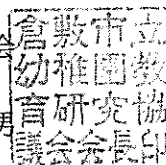 倉敷市立
幼稚園教
育研究協
議会会長印
会
男